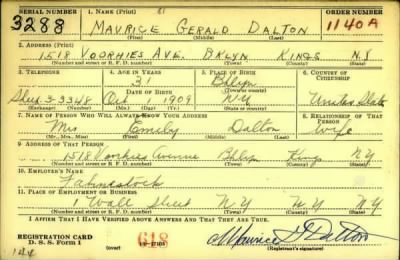 SERIAL NUMBER 1. NAME (Print) ORDER NUMBER
3288 MAURICE GERALD DALTON 1140A
(First) (Middle) (Last)
2. ADDRESS (Print)
1518 VOORHIES AVE. BKLYN KINGS N.Y
(Number and street or R. F. D. number) (Town) (County) (State)
3. TELEPHONE 4. AGE IN YEARS 5. PLACE OF BIRTH 6. COUNTRY OF CITIZENSHIP
31 Bklyn
(Town or county)
Shep 3-3348 Oct 1909 N.Y United States
(Exchange) (Number) (Mo.) (Day) (Yr.) (State or country)
7. NAME OF PERSON WHO WILL ALWAYS KNOW YOUR ADDRESS 8. RELATIONSHIP OF THAT PERSON
Mrs Emily Dalton Wife
(Mr., Mrs., Miss) (First) (Middle) (Last)
9. ADDRESS OF THAT PERSON
1518 Voorhies Avenue Bklyn Kings N.Y
(Number and street or R. F. D. number) (Town) (County) (State)
10. EMPLOYER'S NAME
Fahnestock
11. PLACE OF EMPLOYMENT OR BUSINESS
1 Wall Street N.Y N.Y N.Y
(Number and street or R. F. D. number) (Town) (County) (State)
I AFFIRM THAT I HAVE VERIFIED ABOVE ANSWERS AND THAT THEY ARE TRUE.
REGISTRATION CARD
D. S. S. Form 1 (over) 618 Maurice G Dalton
(Registrant's signature)